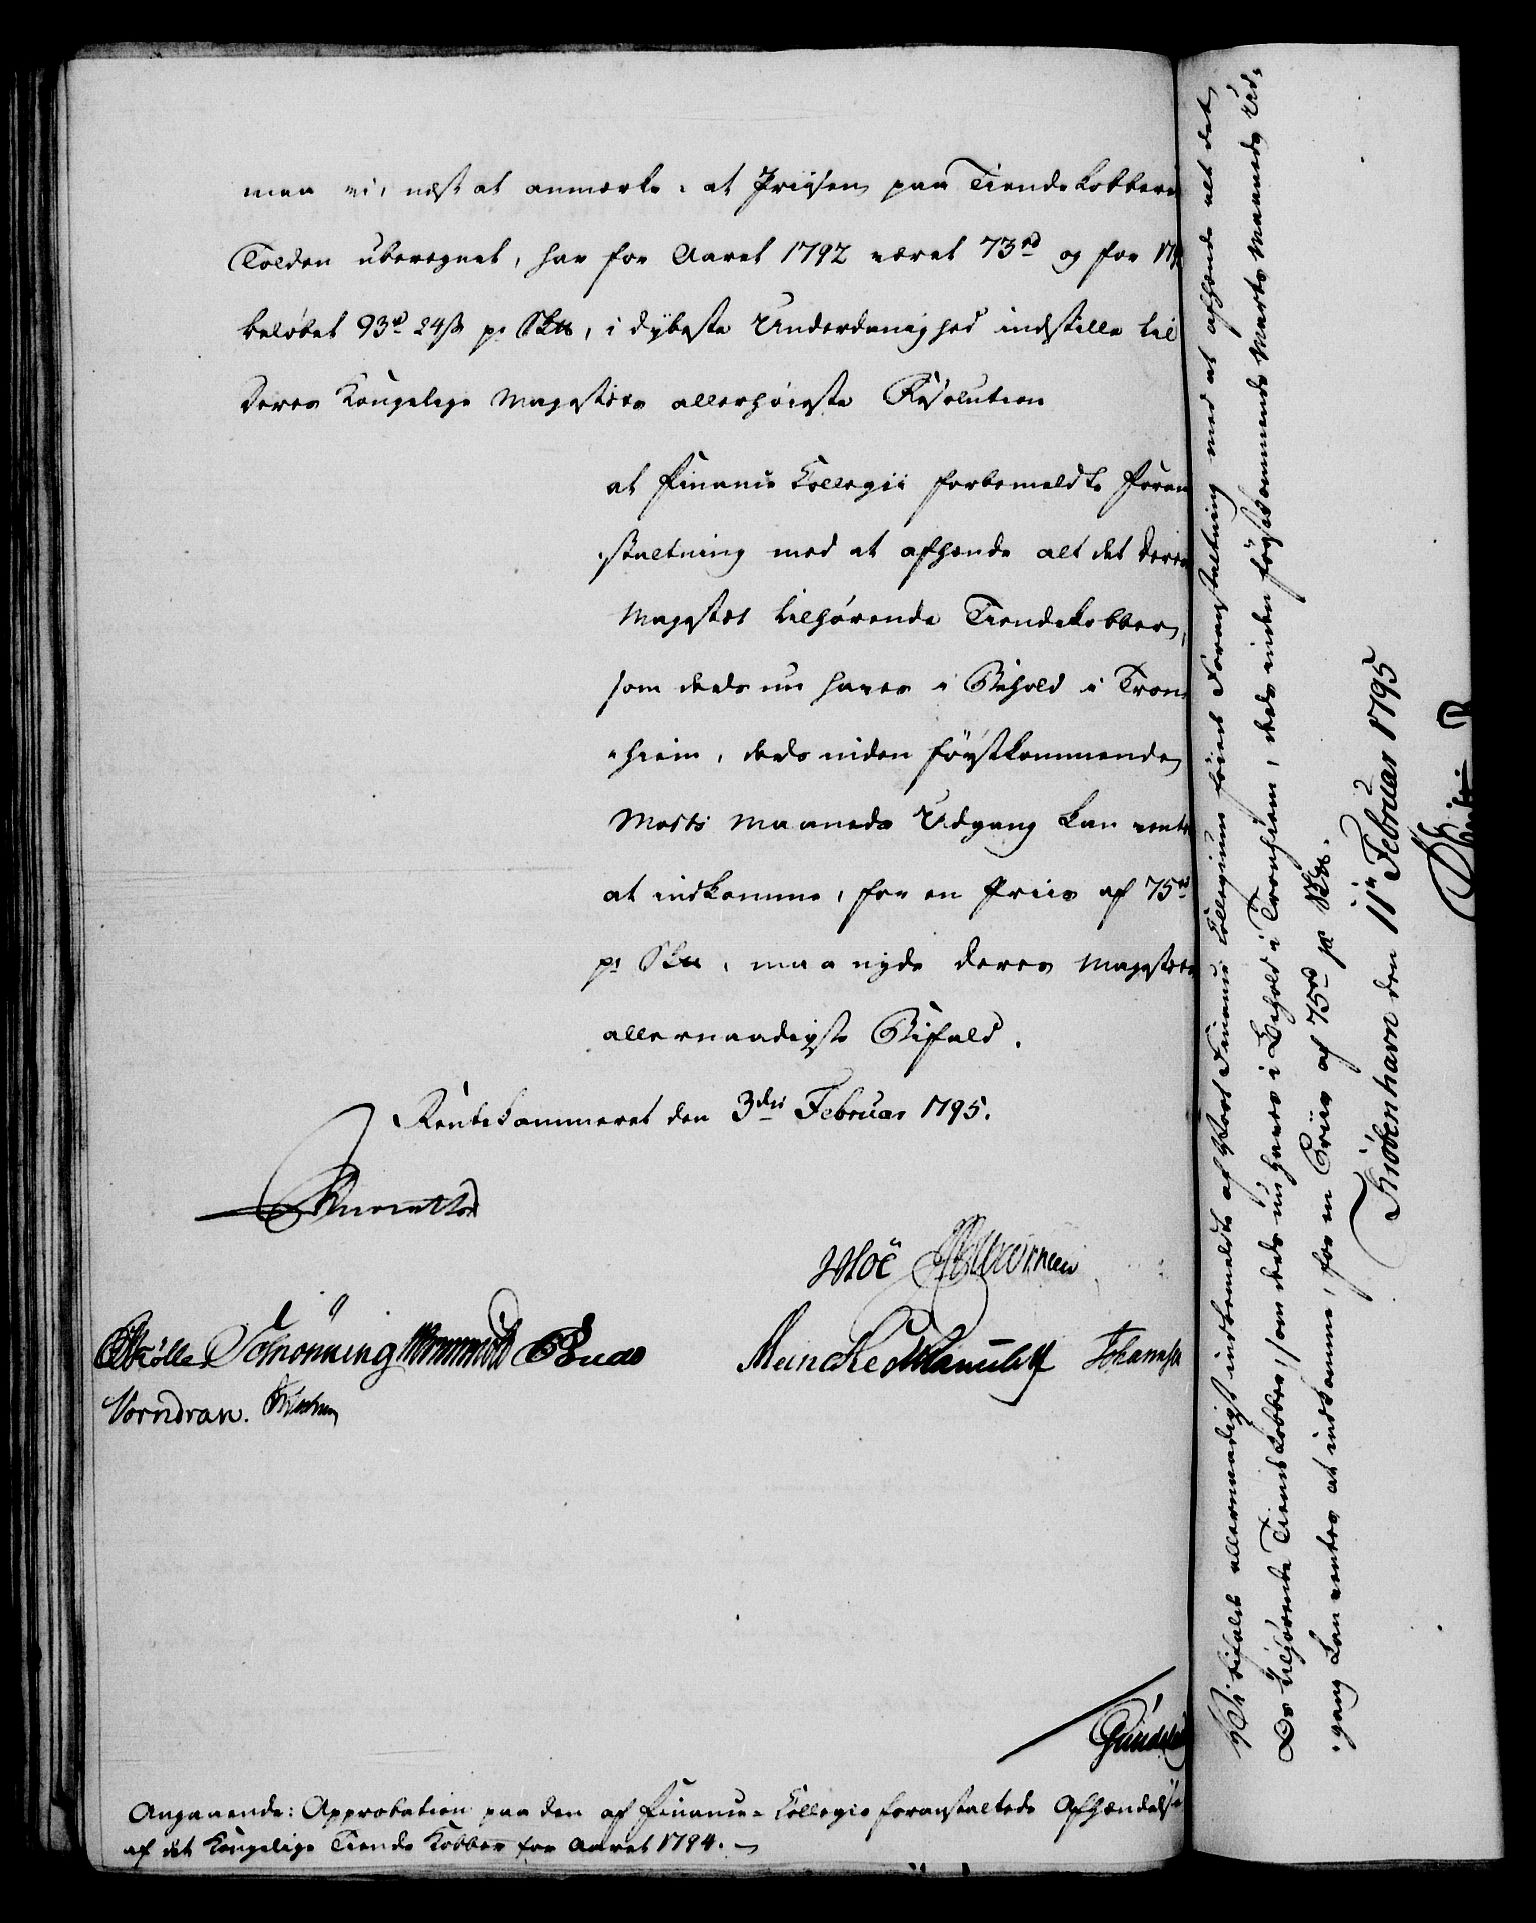 maa vi, næst at anmærke, at Priisen paa Tiende Kobberet
Tolden uberegnet, har for Aaret 1792 været 73 rd og for 179
beløbet 93 rd 24 ß pr Sk℔, i dybeste Underdanighed indstille til
Deres Kongelige Majestæts allerhøieste Resolution
at Finants Collegii forbemeldte Foran
staltning med at afhænde alt det Deres
Majestæt tilhørende Tiendekobber,
som deels nu haves i Behold i Tron
hiem, deels inden førstkommende
Marts Maaneds Udgang kan ventes
at indkomme, for en Priis af 75 rd
pr Sk℔, maa nyde Deres Majestæts
allernaadigste Bifald.
Rentekammeret den 3die Februar 1795.
Moë
Schönning
Müncke
Johannsen
Vorndran.
Angaaende: Approbation paa den af Finants-Collegio foranstaltede Afhændelse
af det Kongelige Tiende Kobber for Aaret 1794.
Vi bifalde allernaadigst indbemeldte af Vort Finants Collegium føiede Foranstaltning med at afhænde alt det
Os tilhørende Tiende Kobber, som deels nu haves i Behold i Tronhiem, deels inden førstkommende Marts Maaneds Ud-
gang kan ventes at indkomme, for en Priis af 75 rd pr Sk℔.
Kiøbenhavn den 11te Februar 1795